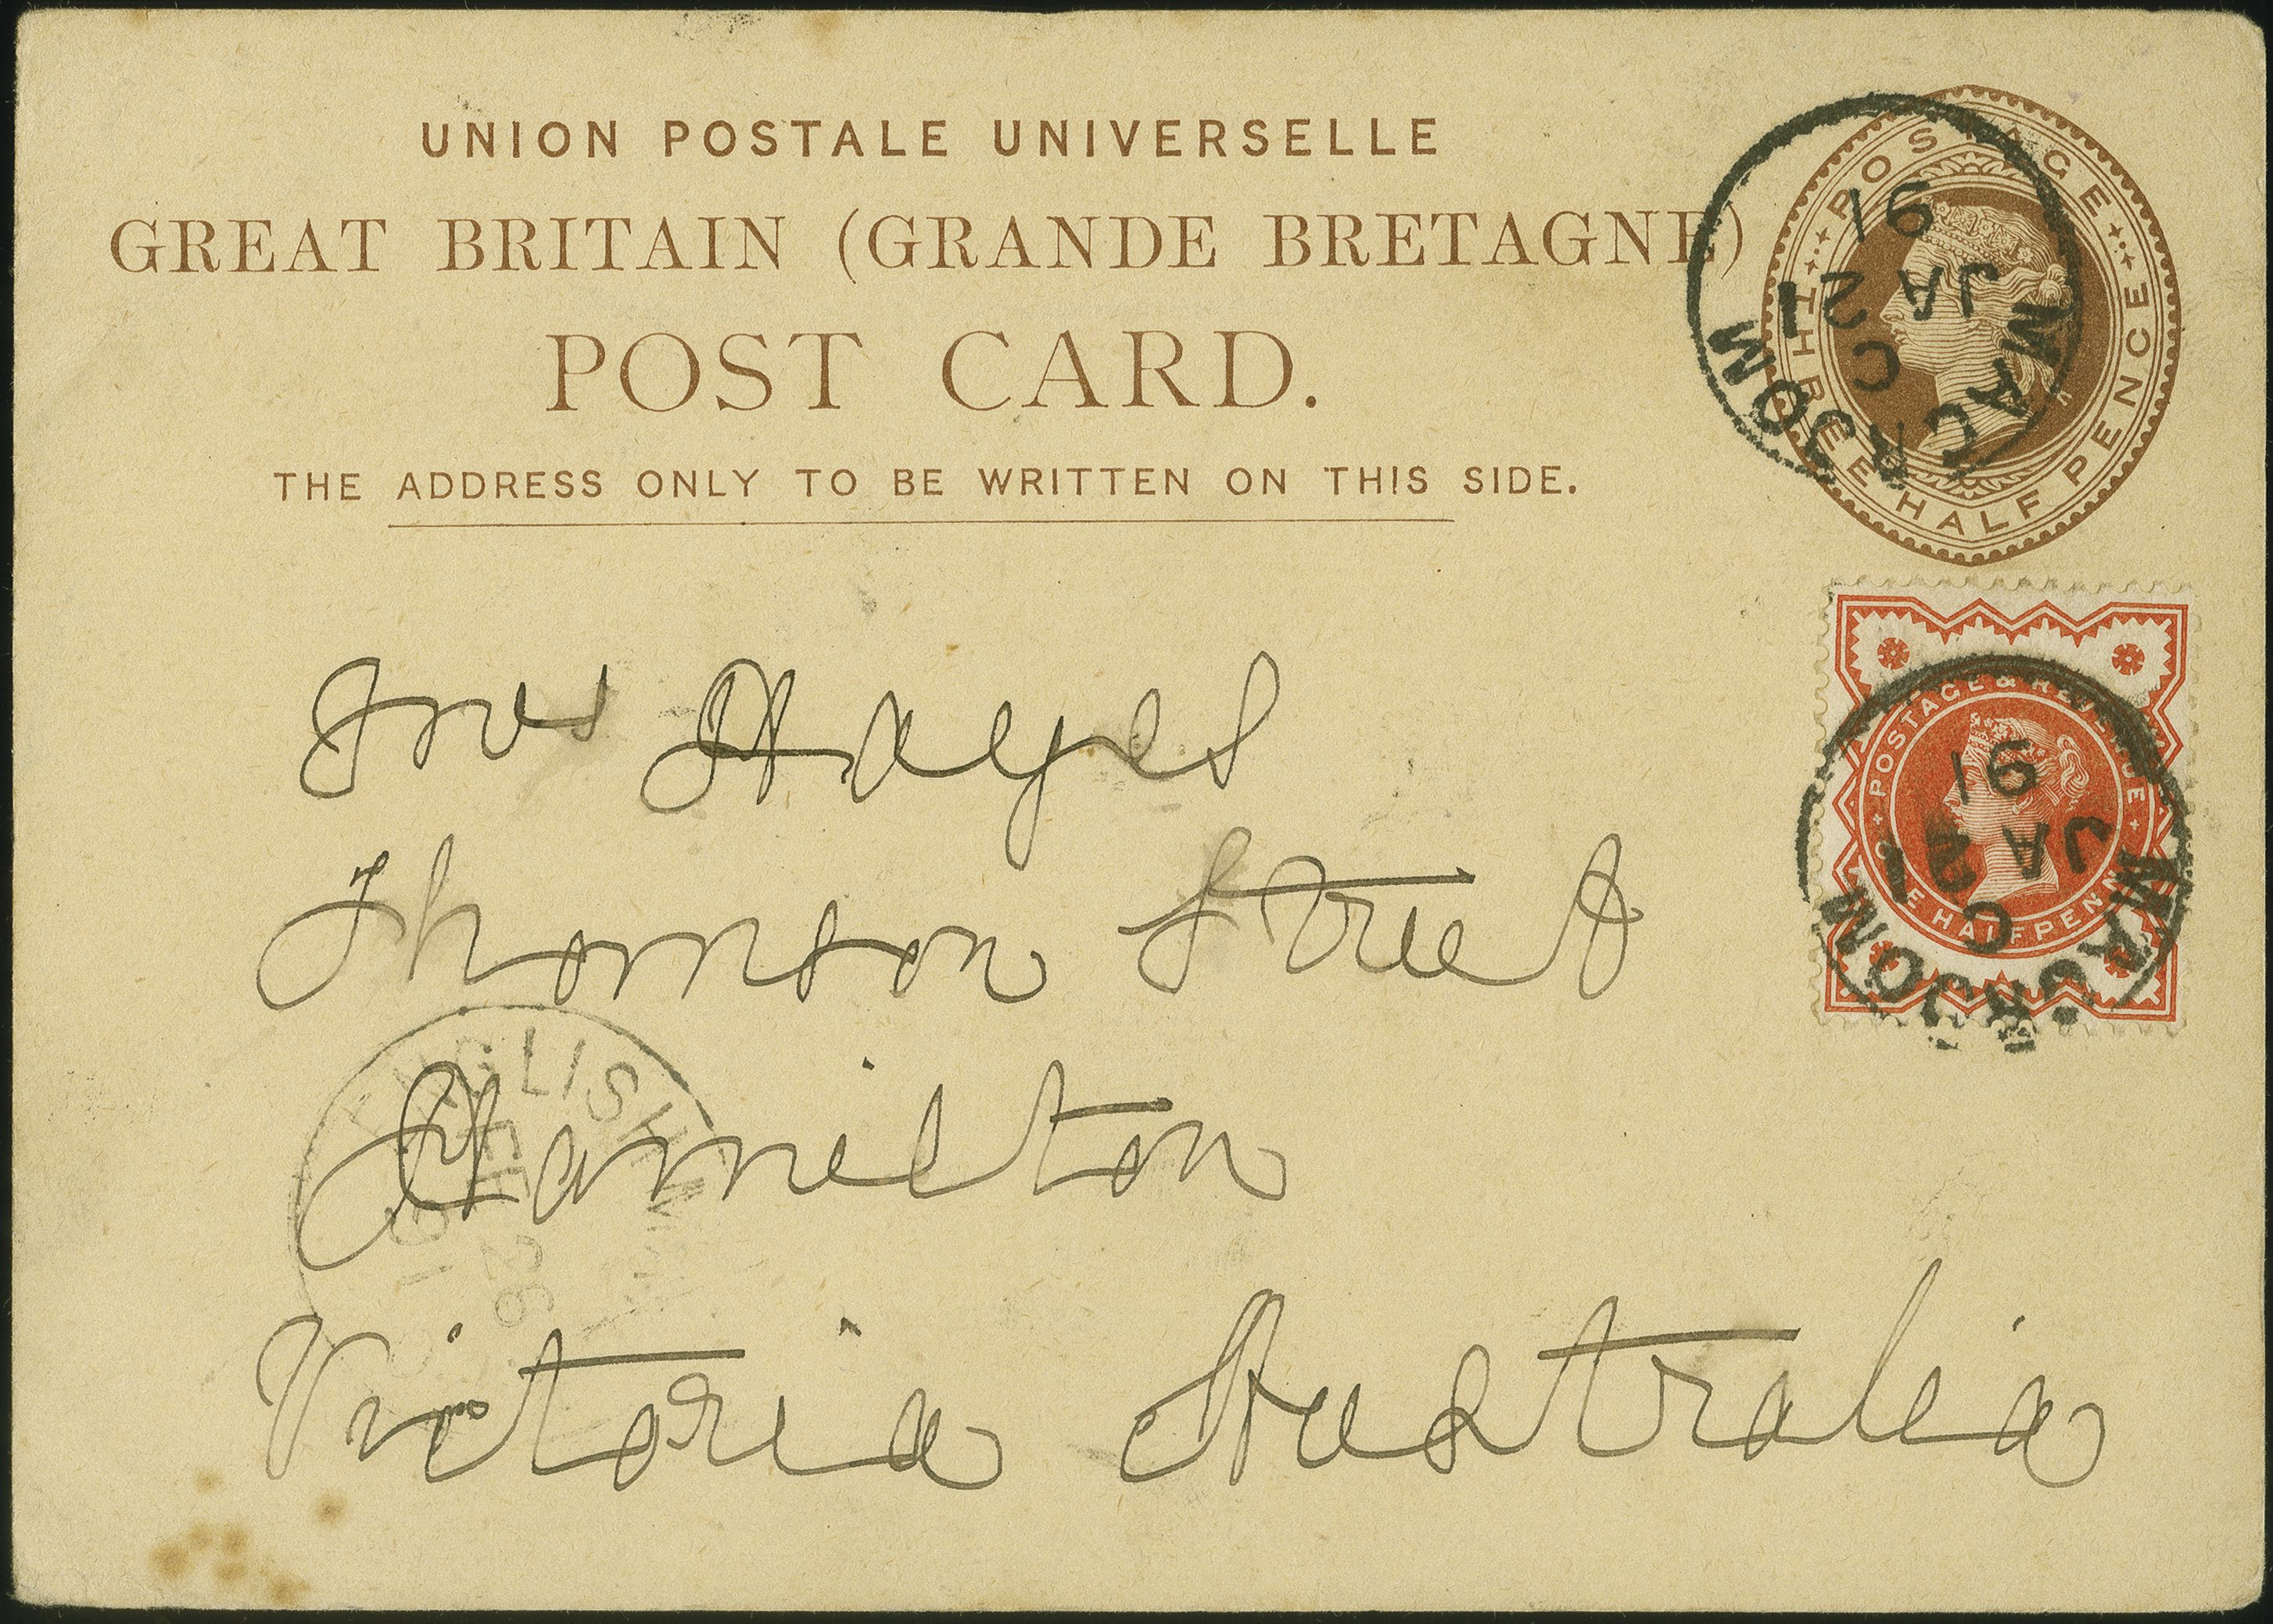 UNION POSTALE UNIVERSELLE
GREAT BRITAIN (GRANDE BRETAGNE)
POST CARD.
THE ADDRESS ONLY TO BE WRITTEN ON THIS SIDE.
POSTAGE
THREE HALF PENCE
MACCAJOM
C
JA 21
91
POSTAGE & REVENUE
ONE HALFPENNY
C
JA 21
91
Mrs Hayes
Thomson Street
Hamilton
Victoria Australia
ENGLISH
FE 26
91